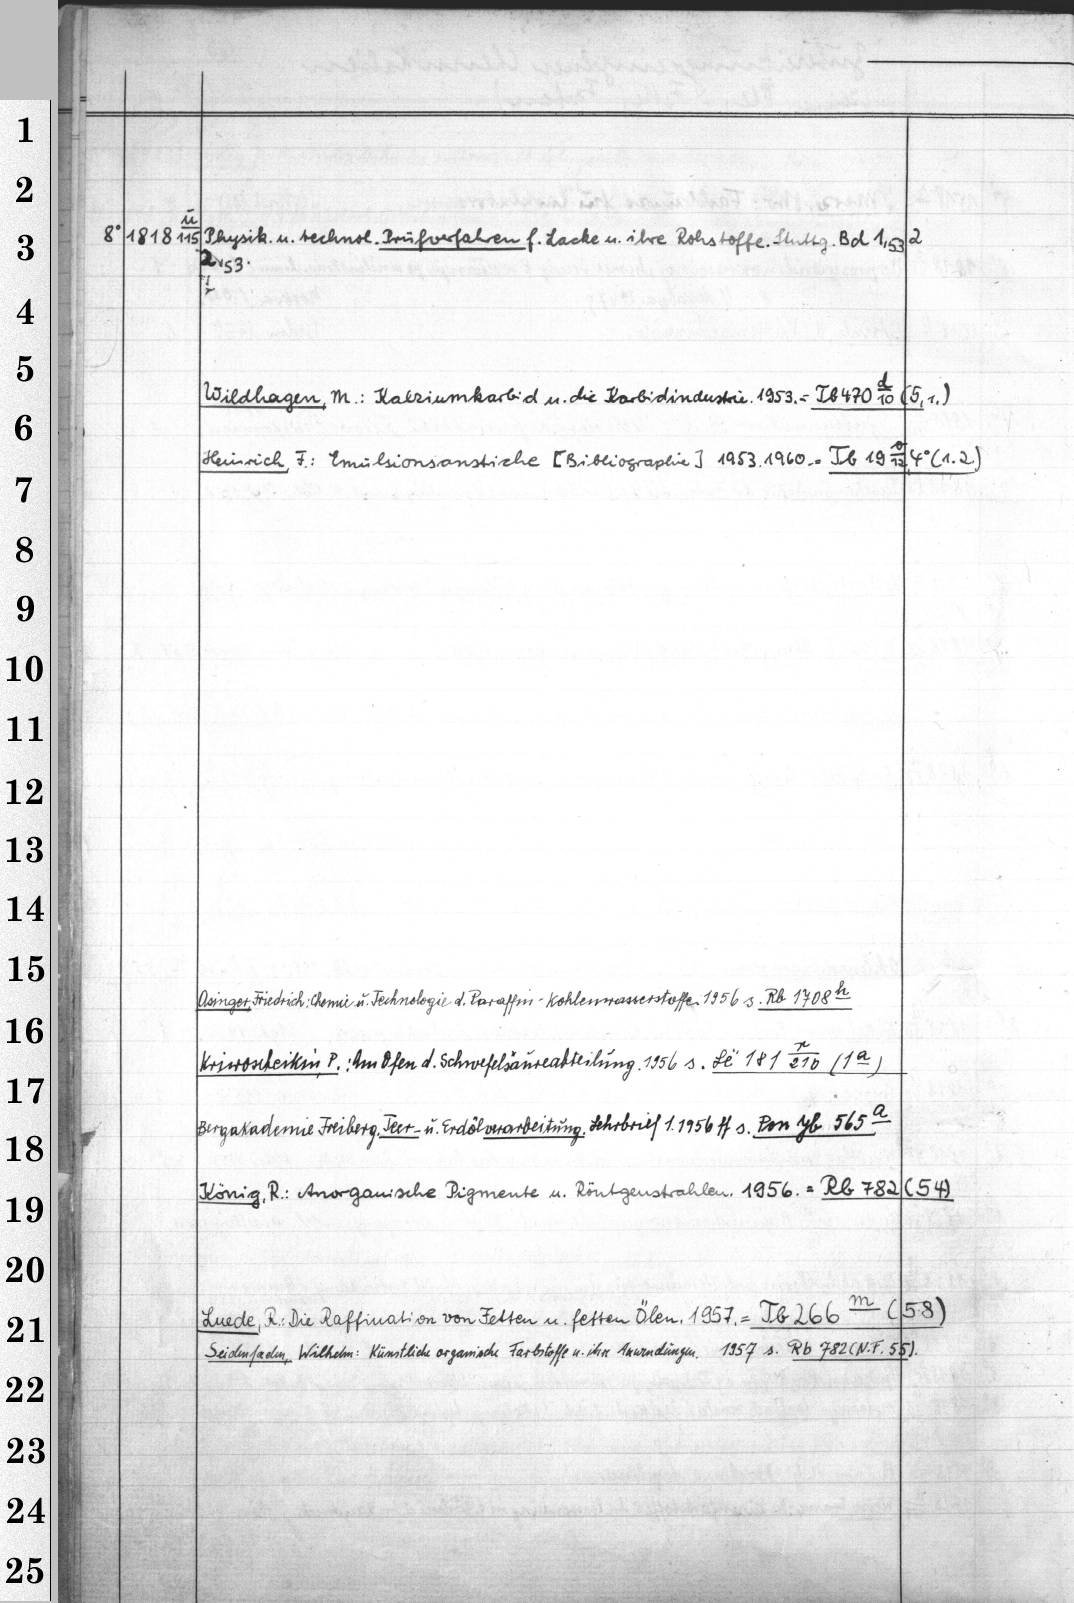 1
2
3
4
5
6
7
8
9
10
11
12
13
14
15
16
17
18
19
20
21
22
23
24
25
8° 1818 ü/115 Physik. u. technol. Prüfverfahren f. Lacke u. ihre Rohstoffe. Stuttg. Bd 1,53 2
2,53.
Wildhagen, M.: Kalziumkarbid u. die Karbidindustrie. 1953. = Tb 470 d/10 (5,1.)
Heinrich, F.: Emulsionsanstriche [Bibliographie] 1953.1960. = Tb 19 v/12, 4° (1.2.)
Asinger, Friedrich: Chemie u. Technologie d. Paraffin-Kohlenwasserstoffe. 1956 s. Rb 1708 h
Kriwoscheikin, P.: Am Ofen d. Schwefelsäureabteilung. 1956 s. Lë 181 r/210 (1a)
Bergakademie Freiberg. Teer- u. Erdölverarbeitung. Lehrbrief 1. 1956 ff s. Pon yb 565 a
König, R.: Anorganische Pigmente u. Röntgenstrahlen. 1956. = Rb 782 (54)
Luede, R.: Die Raffination von Fetten u. fetten Ölen. 1957. = Tb 266 m (58)
Seidenfaden, Wilhelm: Künstliche organische Farbstoffe u. ihre Anwendungen. 1957 s. Rb 782 (N.F. 55).